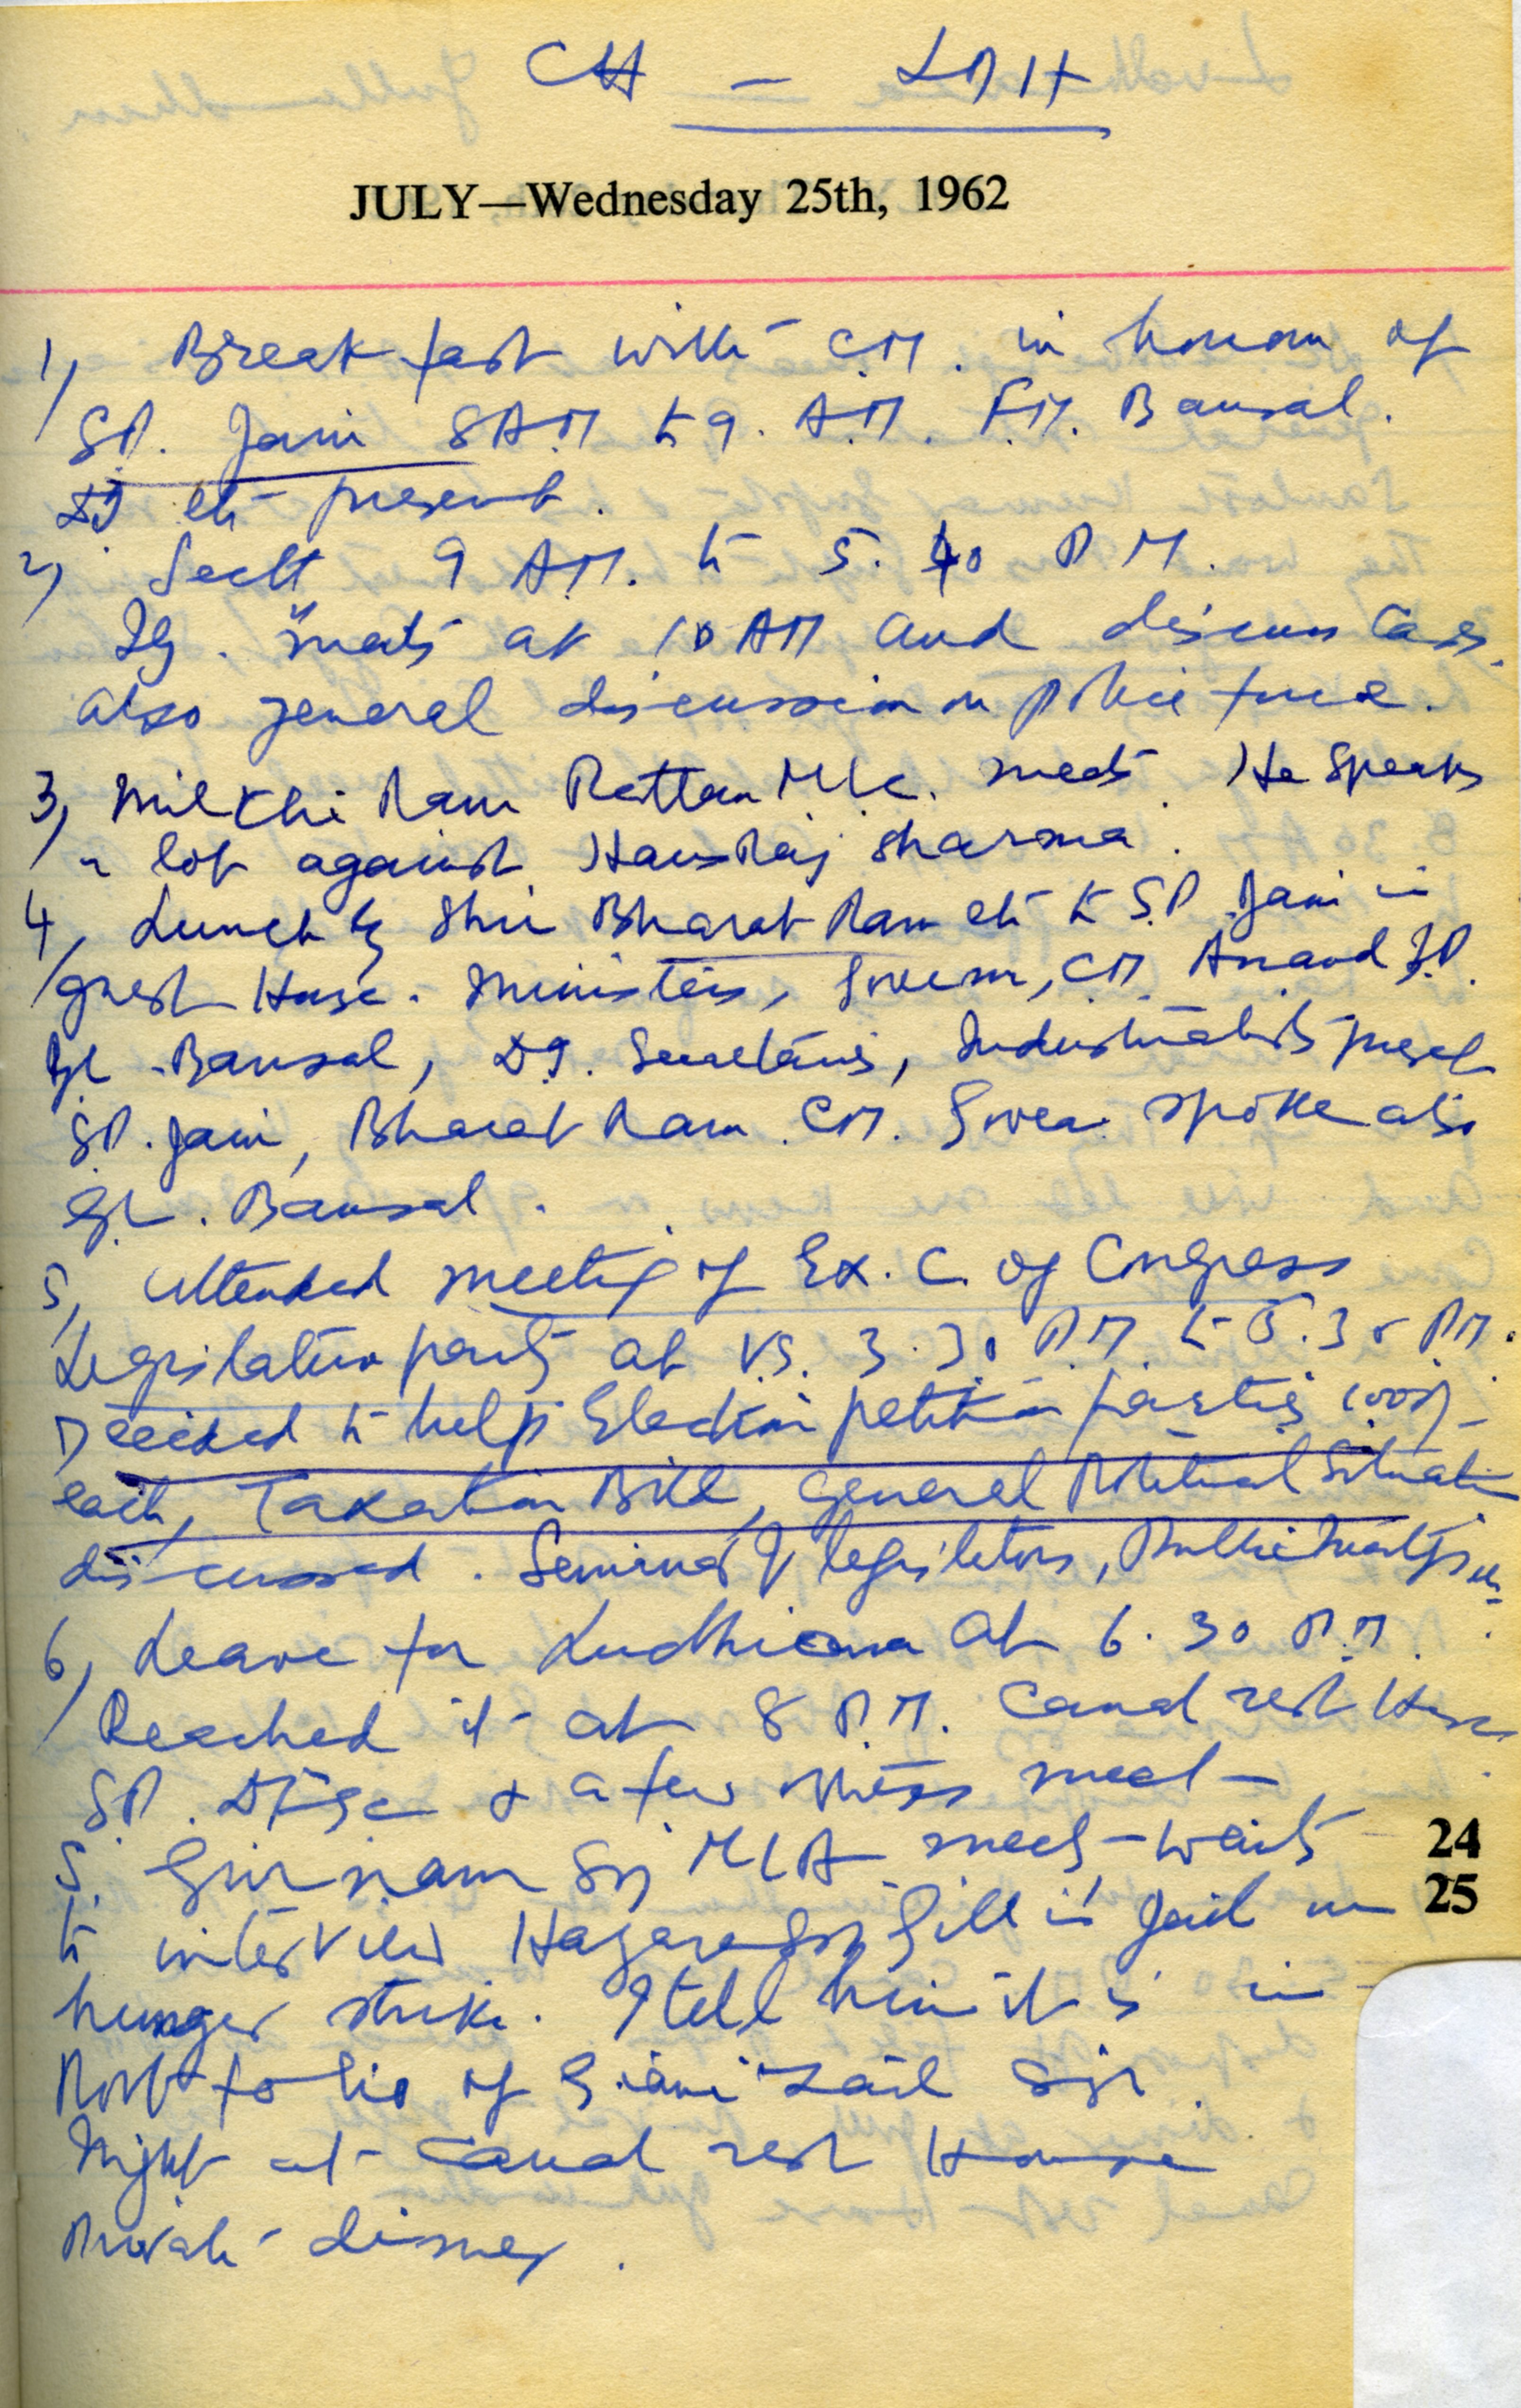 CH — LDH
JULY—Wednesday 25th, 1962
1, Breakfast with C.M. in honour of
S.P. Jain 8 AM to 9. A.M. F.M. Bansal.
etc present.
2, Sectt 9 A.M. to 5. 40 P M.
Ig. meets at 10 AM and discuss Cases.
also general discussion on police force.
3, Milkhi Ram Rattan M.L.C. meets. He speaks
a lot against Hans Raj Sharma.
4, Lunch by Shri Bharat Ram etc to S.P. Jain in
guest House. Ministers, Govern, CM Anand J.P.
G.L. Bansal, D.I. Secretaries, Industrialists present
S.P. Jain, Bharat Ram. CM. Gover spoke also
G.L. Bansal.
5, Attended meeting of Ex. C. of Congress
Legislative party at V.S. 3.30 P.M. to 5.30 P.M.
Decided to help Election petition parties 1000/-
each, Taxation Bill, general Political Situation
discussed. Seminar of legislators, Public meetings etc
6, Leave for Ludhiana at 6.30 P.M.
Reached it at 8 P.M. Canal rest House
S.P. & a few others meet
S. Gurnam Sg M L A meets — wants
to interview Hazara Sgh Gill in Jail on
hunger strike. I tell him it is in
Portfolio of Giani Zail Sgh.
Night at Canal rest House
Private dinner.
24
25